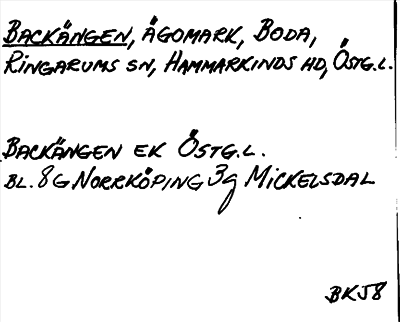 BACKÄNGEN, ÄGOMARK, BODA,
RINGARUMS SN, HAMMARKINDS HD, ÖSTG.L.
BACKÄNGEN EK ÖSTG.L.
BL. 8G NORRKÖPING 3g MICKELSDAL
BKJ8